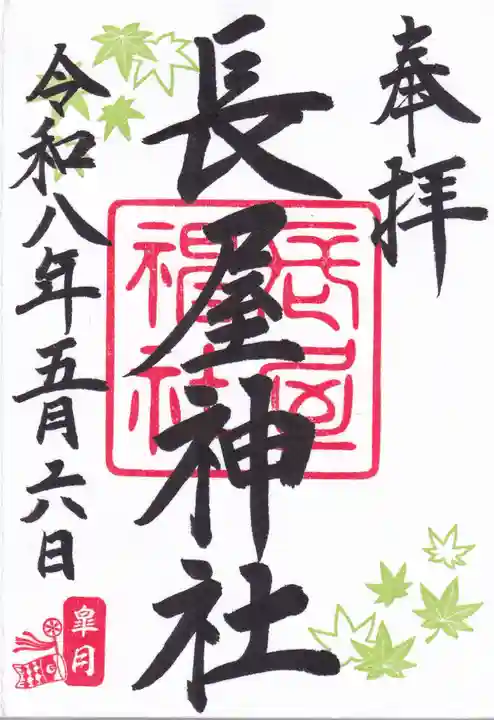 奉拝
長屋神社
長屋神社
令和八年五月六日
皐月